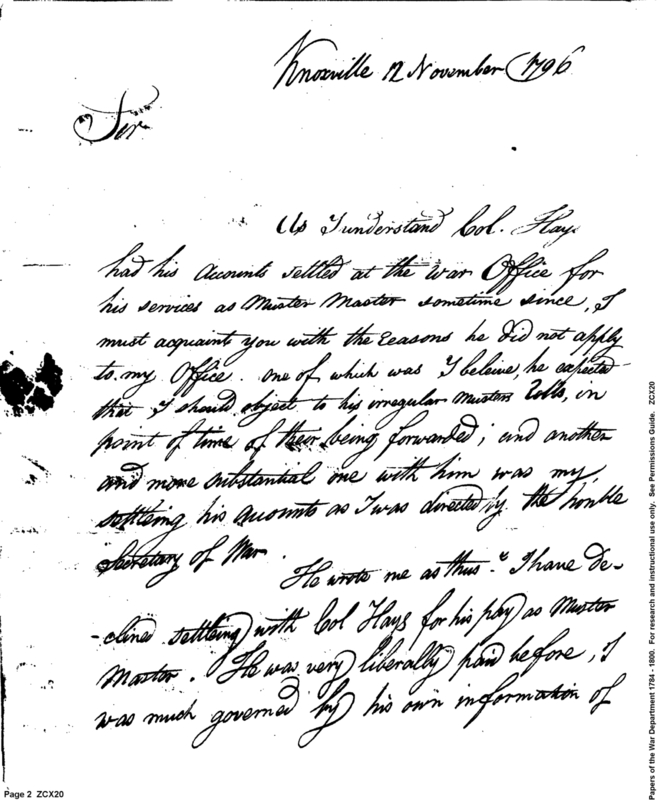 Knoxville 12 November 1796
Sir
As I understand Col. Hays
had his accounts settled at the war Office for
his services as Muster Master sometime since, I
must acquaint you with the reasons he did not apply
to my Office. one of which was I beleive, he expected
that I should object to his irregular Musters Rolls, in
point of time of their being forwarded; and another
and more substantial one with him was my
settleing his accounts as I was directed by the honble
Secretary of War.
He wrote me as thus. "I have de-
-clined settleing with Col Hays for his pay as Muster
Master. He was very liberally paid before, I
was much governed by his own information of
Page 2 ZCX20
Papers of the War Department 1784 - 1800. For research and instructional use only. See Permissions Guide. ZCX20